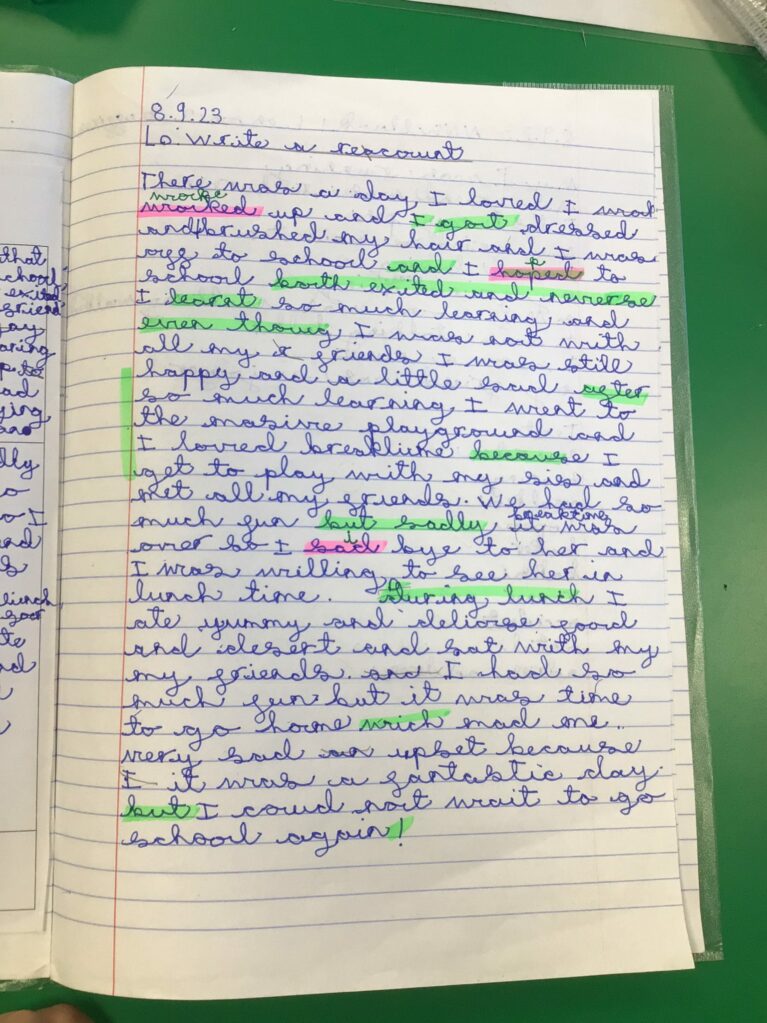 8.9.23
Lo: Write a reacount
There was a day I loved I wok
wocke
worked up and I gort dressed
and brushed my hair and I was
off to school and I hoped to
p
school borth exited and neverse
I learst so much learning and
even thoug I was not with
all my friends I was still
happy and a little sad after
so much learning I went to
the masive playground and
I loved breaktime because I
get to play with my sis and
met all my friends. We had so
breaktime
much fun but sadly it was
over so I said bye to her and
I was willing to see her in
lunch time. During lunch I
ate yummy and deliorse food
and desert and sat with my
my friends and I had so
much fun but it was time
to go home wich mad me
very sad an upset because
I it was a fantastic day
but I coud not wait to go
school again!